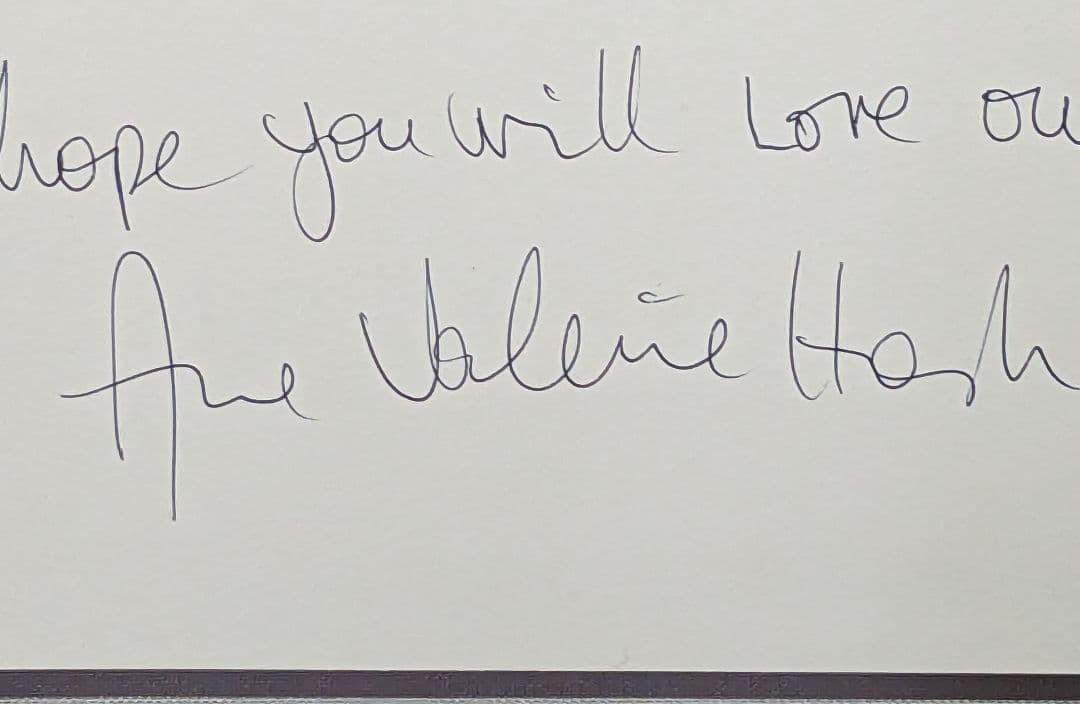 hope you will love ou
Anne Valérie Hash